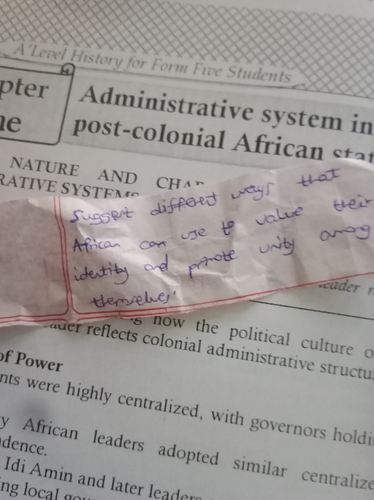 A'Level History for Form Five Students
pter
ne
Administrative system in
post-colonial African stat
NATURE AND CHA
RATIVE SYSTEMS
Suggest different ways that
African can use to value their
identity and promote unity among
themselves
eader r
now the political culture o
reflects colonial administrative structu
of Power
nts were highly centralized, with governors holdi
y African leaders adopted similar centralize
dence.
Idi Amin and later leaders
ing local gov